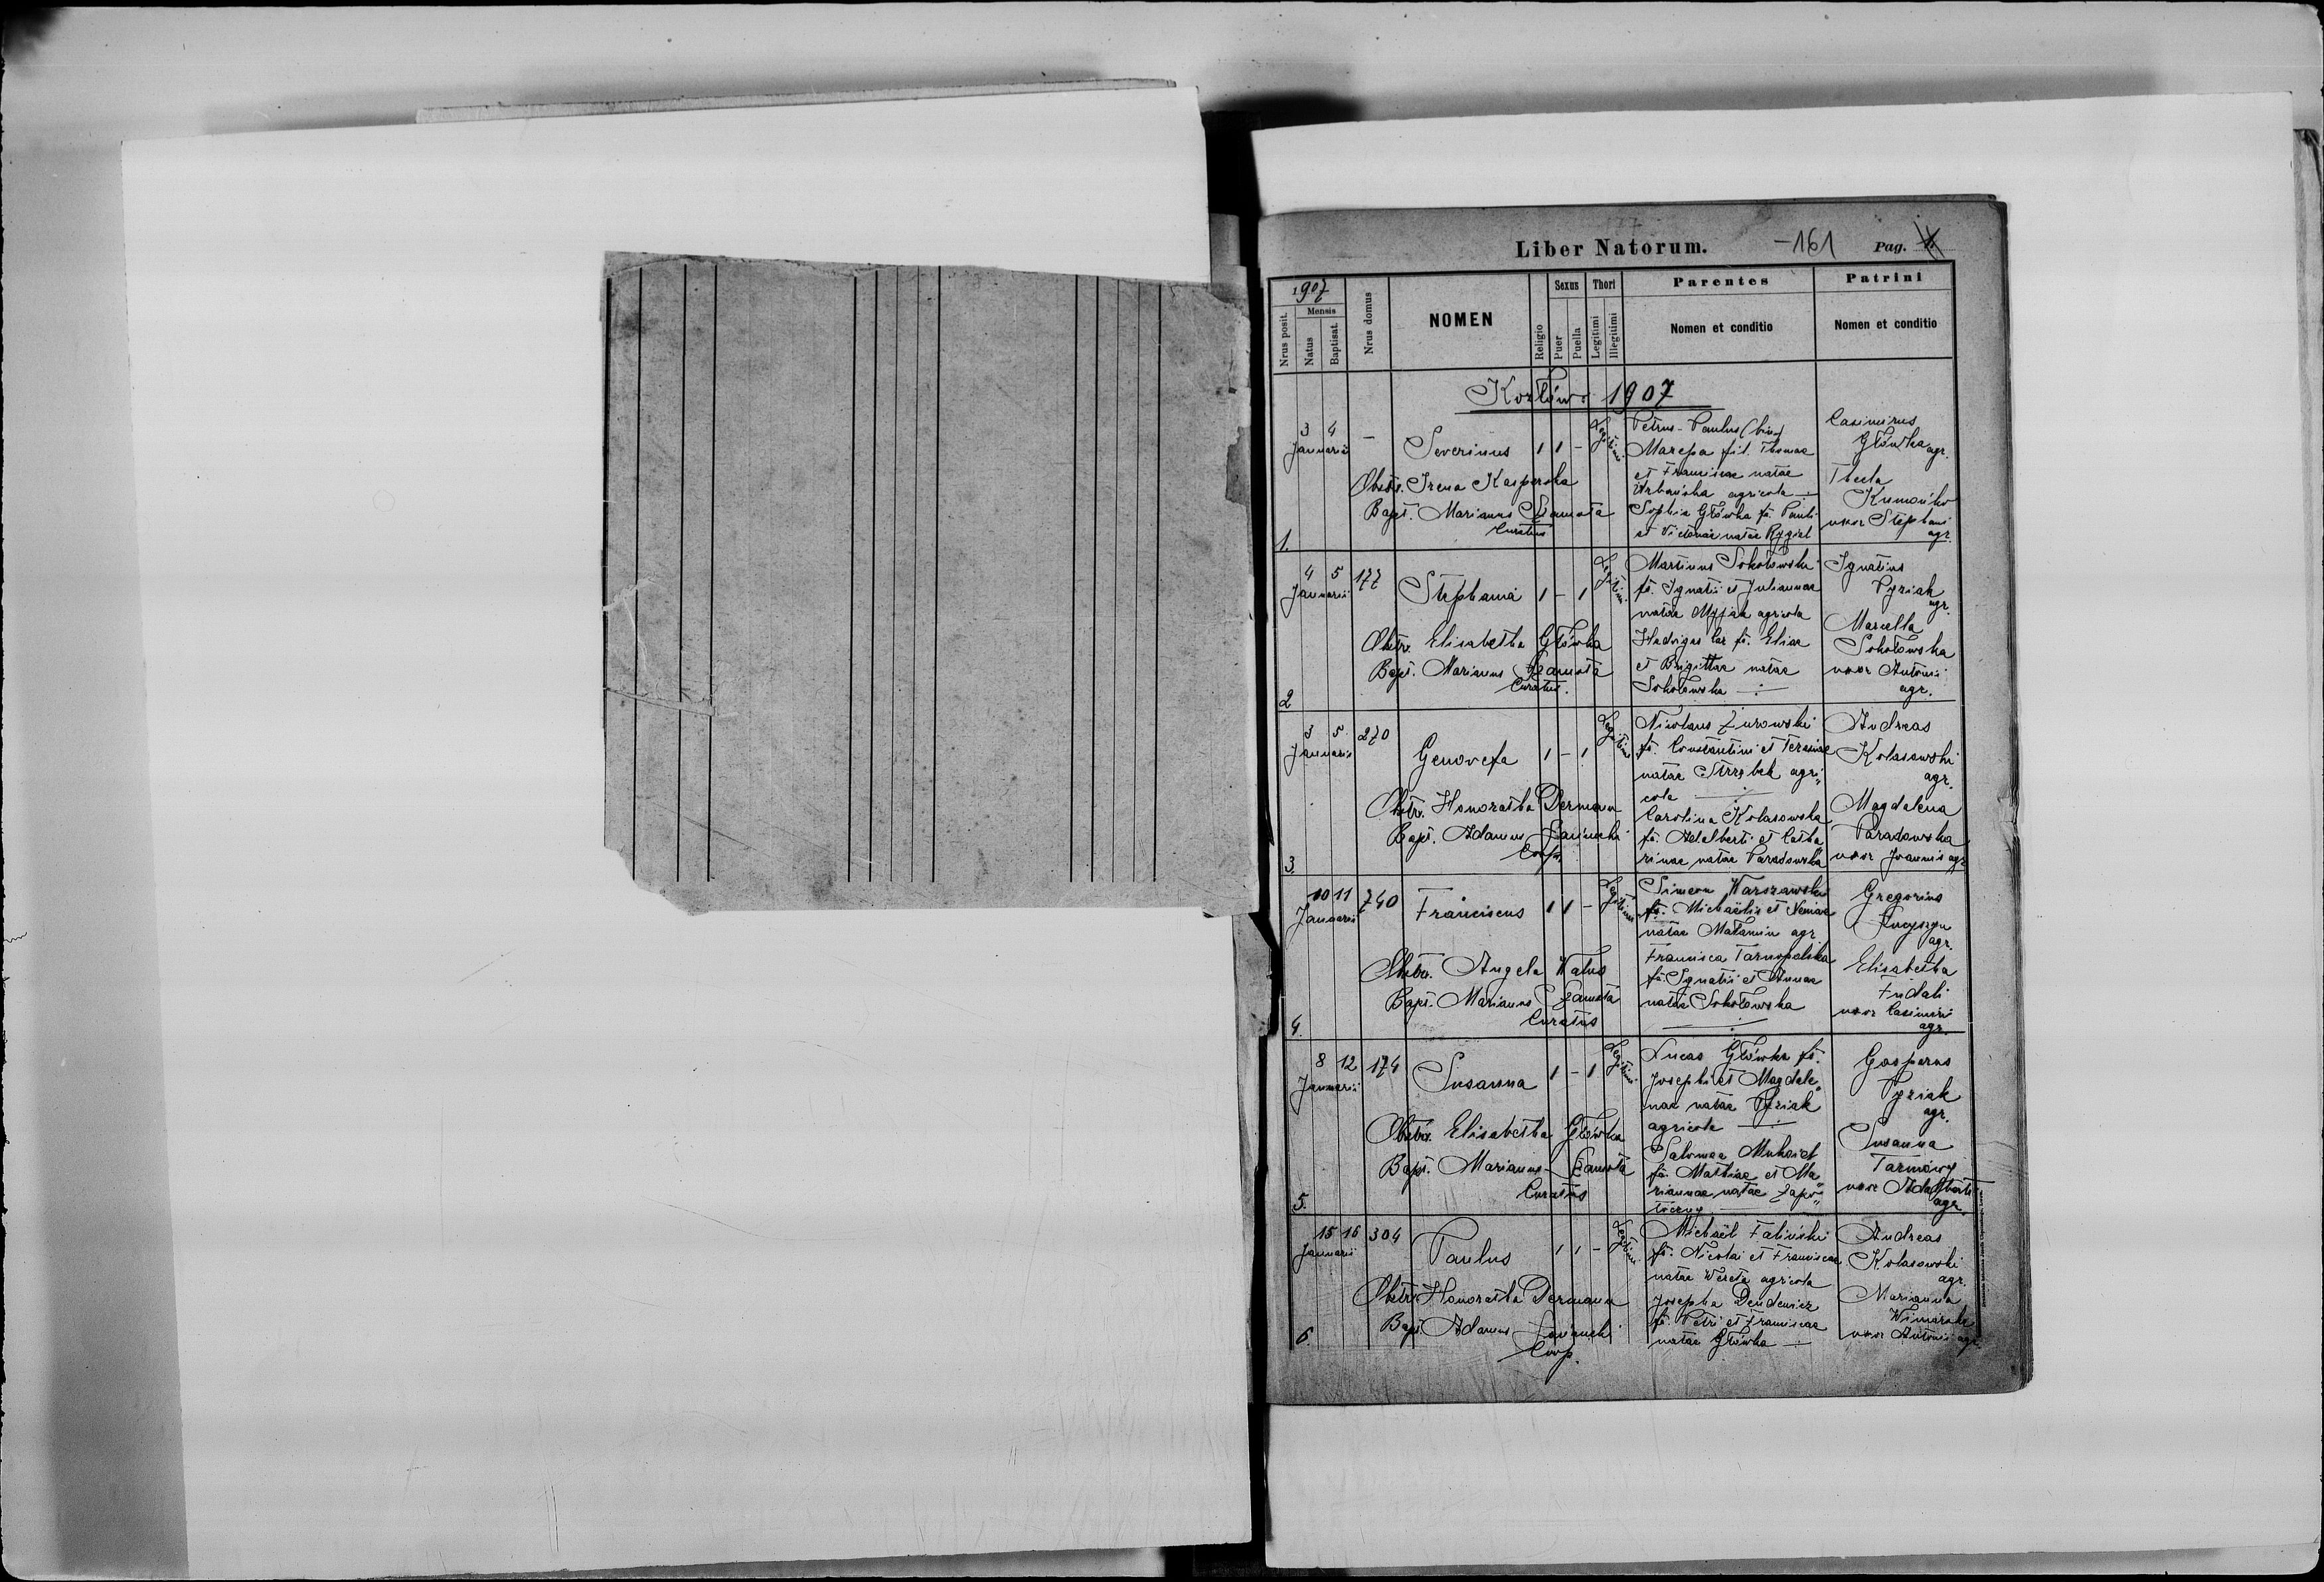 Liber Natorum.
-161
Pag.
1907
Mensis
Nrus posit.
Natus
Baptisat.
Nrus domus
NOMEN
Religio
Sexus
Puer
Puella
Thori
Legitimi
Illegitimi
Parentes
Nomen et conditio
Patrini
Nomen et conditio
Kozłów 1907
1.
3 4
Januarii
-
Severinus
1 1 -
Legitimi
Obstr. Irena Kasperska
Bapt. Marianus
Curatus
Petrus-Paulus (bin)
fil. Thomae
et Franciscae natae
Urbańska agricola
Sophia Główka fa. Pauli
et Victoriae natae Rygiel
Casimirus
Główka agr.
Thecla
uxor Stephani
agr.
2
4 5
Januarii
177
Stephania
1 - 1
Legitimi
Obstr. Elisabetha Główka
Bapt. Marianus
Curatus.
Martinus Sokołowski
fs. Ignatii et Juliannae
natae agricola
Hedviges fa. Eliae
et Brigittae natae
Sokołowska
Ignatius
Pyziak
agr.
Marcella
Sokołowska
uxor Antonii
agr.
3.
3 5
Januarii
270
Genovefa
1 - 1
Legitimi
Obstr. Honoratha Dermann
Bapt. Adamus
Coop.
Nicolaus Żurowski
fs. Constantini et Teresiae
natae agri„
cola
Carolina Kolasowska
fa. Adalberti et Catha„
rinae natae Paradowska
Andreas
Kolasowski
agr.
Magdalena
Paradowska
uxor Joannis agr.
4.
10 11
Januarii
240
Franciscus
1 1 -
Legitimi
Obstr. Angela Walus
Bapt. Marianus
Curatus
Simeon Warszawski
fs. Michaëlis et
natae agr.
Francisca Tarnopolska
fa. Ignatii et Annae
natae Sokołowska
Gregorius
agr.
Elisabetha
Fudali
uxor Casimiri
agr.
5.
8 12
Januarii
174
Susanna
1 - 1
Legitimi
Obstr. Elisabetha Główka
Bapt. Marianus
Curatus
Lucas Główka fs.
Josephi et Magdale„
nae natae Pyziak
agricola
Salomea
fa. Mathiae et Ma„
riannae natae
Gasparus
Pyziak
agr.
Susanna
uxor Adalberti
agr.
6.
15 16
Januarii
304
Paulus
1 1 -
Legitimi
Obstr. Honoratha Dermann
Bapt. Adamus
Coop.
Michaël Faliński
fs. Nicolai et Franciscae
natae Wereta agricola
Josepha Dendewicz
fa. Petri et Franciscae
natae Główka
Andreas
Kolasowski
agr.
Marianna
uxor Antonii agr.